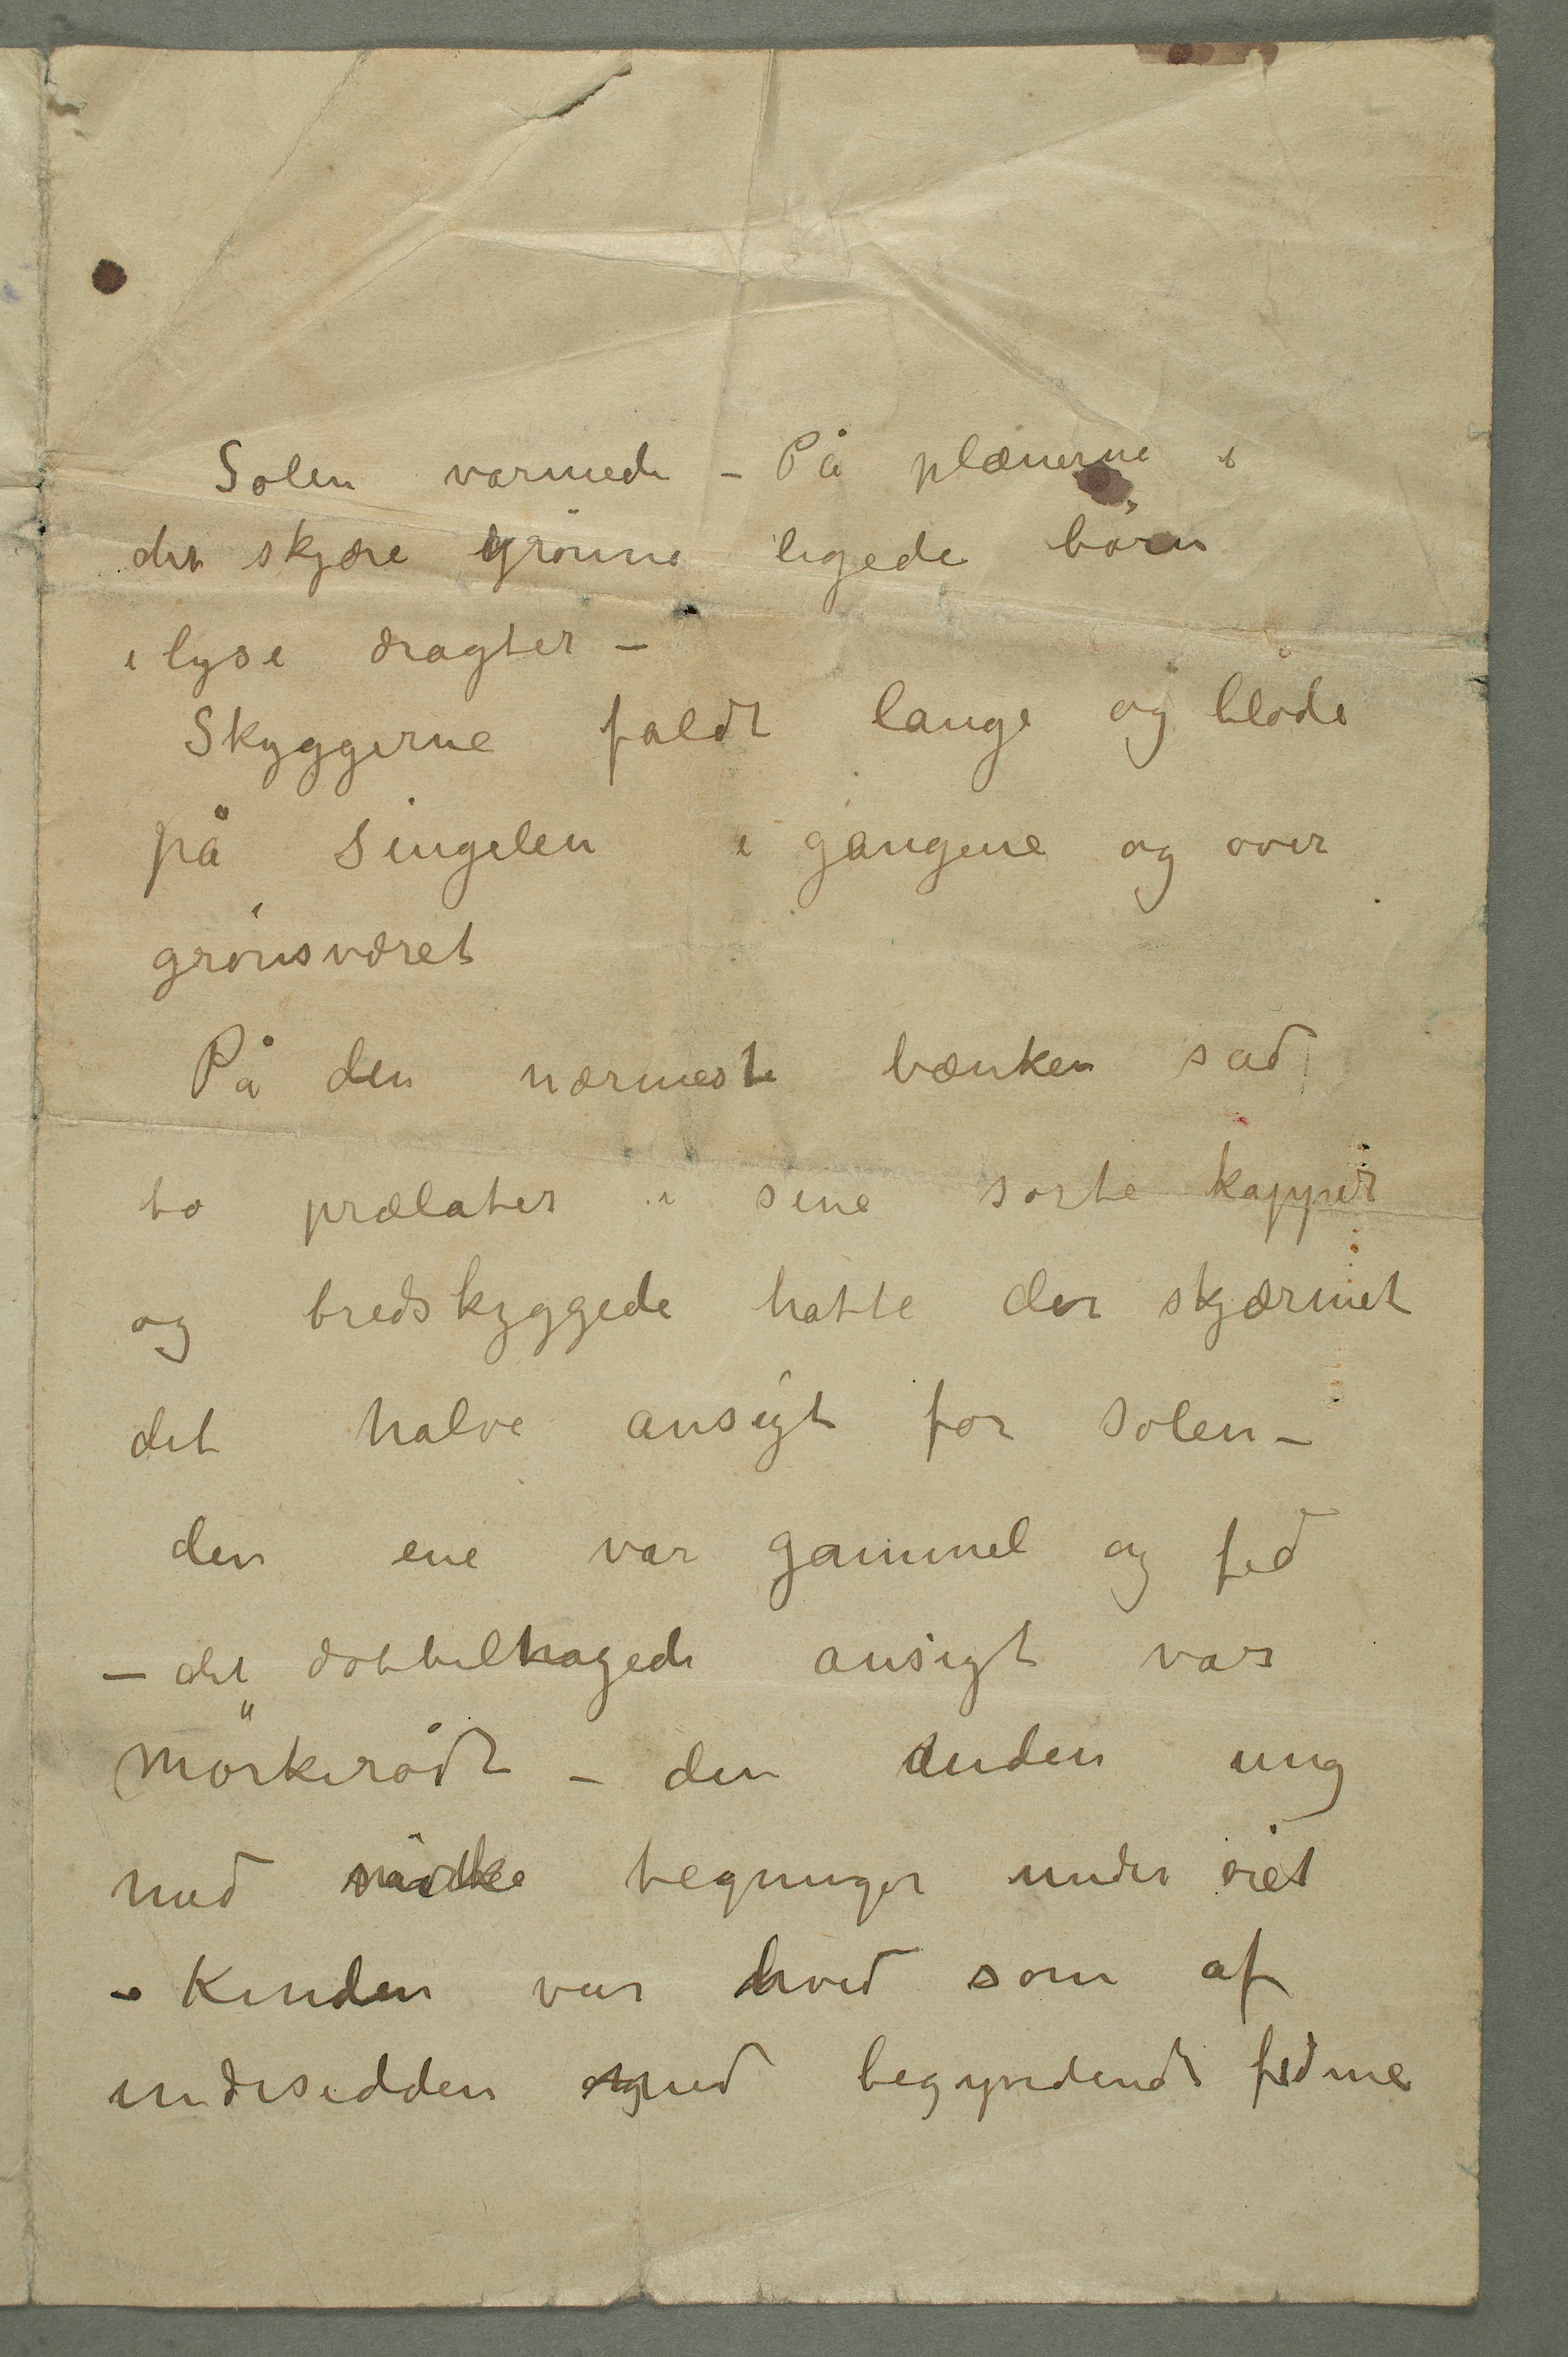 Solen varmede – På plænerne i
det skjære grønne legede børn
i lyse dragter –
Skyggerne faldt lange og bløde
på singelen i gangene og over
grønsværet
På den nærmeste bænken sad
to prælater i sine sorte kapper
og bredskyggede hatte der skjærmet
det halve ansigt for solen –
den ene var gammel og fed
– det dobbelhagede ansigt var
mørkerødt – den anden ung
med mørke tegninger under øiet
– Kinden var hvid som af
indesidden med begyndende fedme